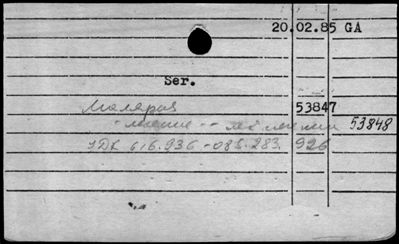 20.02.85 GA
Ser.
Малярия 53847
- лечение -- 53848
УДК 616.936-085.283.926